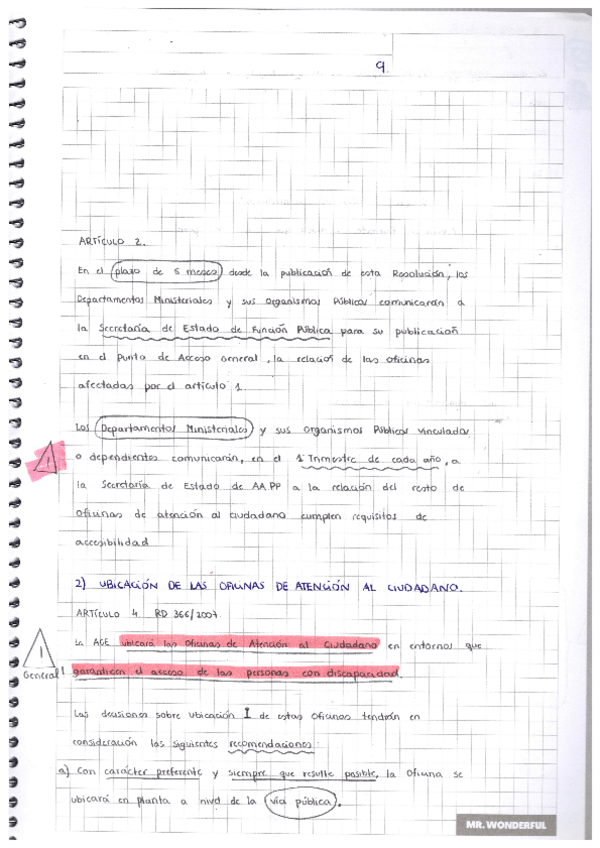 9
ARTÍCULO 2.
En el plazo de 5 meses desde la publicación de esta Resolución, los
Departamentos Ministeriales y sus Organismos Públicos comunicarán a
la Secretaría de Estado de Función Pública para su publicación
en el Punto de Acceso General, la relación de las oficinas
afectadas por el artículo 1
Los Departamentos Ministeriales y sus Organismos Públicos vinculados
o dependientes comunicarán, en el 1 Trimestre de cada año, a
la Secretaría de Estado de AA.PP a la relación del resto de
oficinas de atención al ciudadano cumplen requisitos de
accesibilidad
2) UBICACIÓN DE LAS OFICINAS DE ATENCIÓN AL CIUDADANO.
ARTÍCULO 4. RD 366/2007
La AGE ubicará las Oficinas de Atención al Ciudadano en entornos que
General! garanticen el acceso de las personas con discapacidad.
Las decisiones sobre ubicación I de estas Oficinas tendrán en
consideración las siguientes recomendaciones
a) Con carácter preferente y siempre que resulte posible, la Oficina se
ubicará en planta a nivel de la vía pública.
MR. WONDERFUL